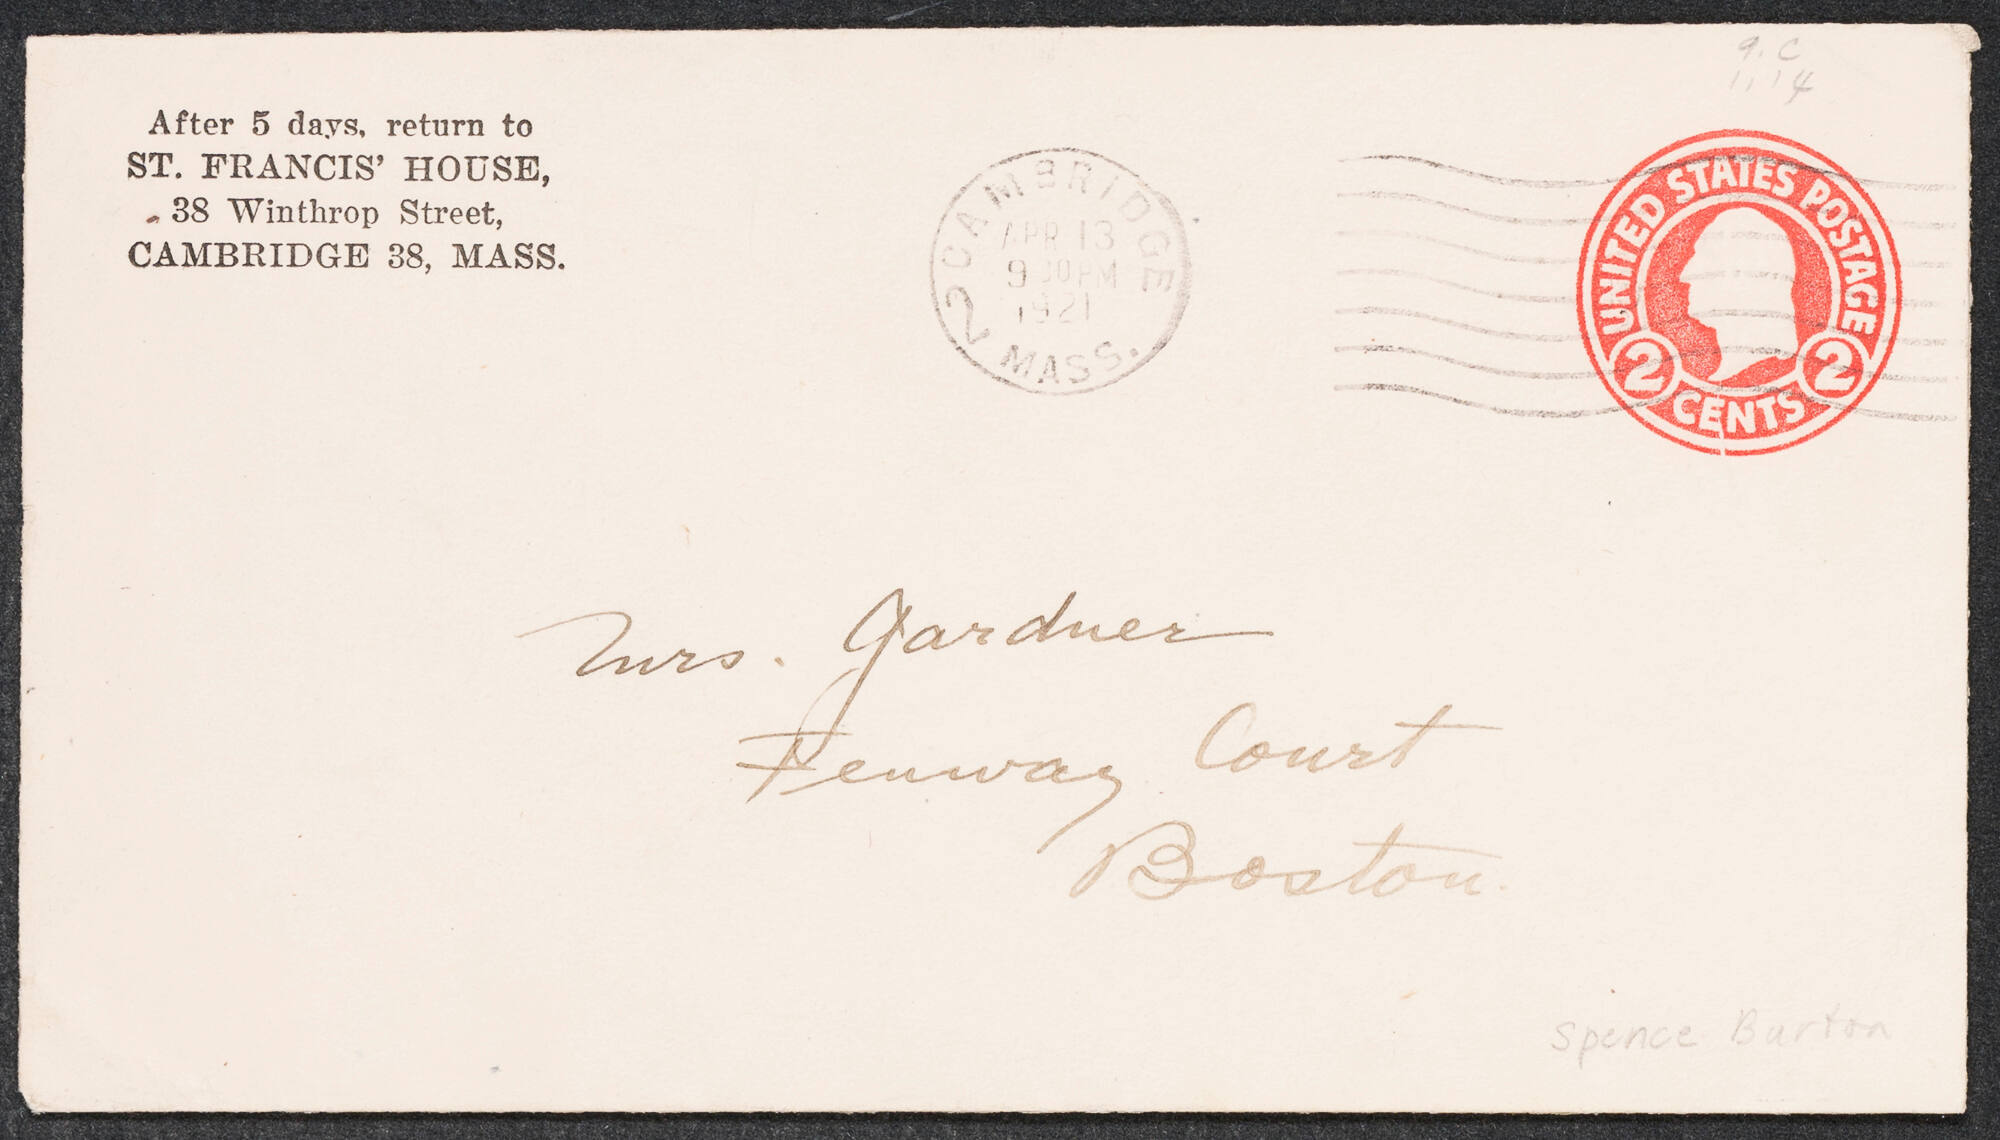 9. C
11.14
After 5 days, return to
ST. FRANCIS' HOUSE,
38 Winthrop Street,
CAMBRIDGE 38, MASS.
CAMBRIDGE
APR 13
9 30 PM
1921
2 MASS.
UNITED STATES POSTAGE
2 CENTS 2
Mrs. Gardner
Fenway Court
Boston.
Spence Burton